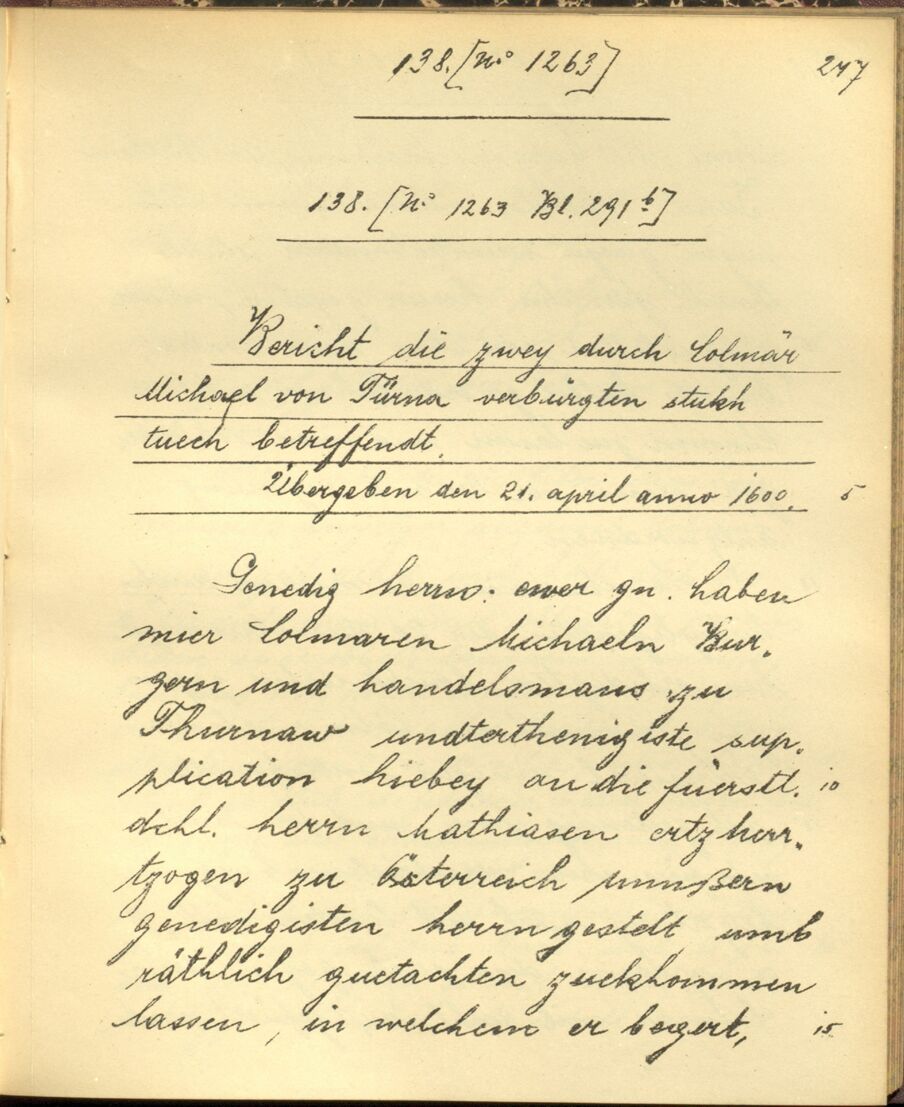 138. [No 1263]
247
138. [No 1263 Bl. 291 b]
Bericht die zwey durch Colmär
Michael von Türna verbürgten stukh
tuech betreffendt.
Übergeben den 21. april anno 1600. 5
Genedig herrn: ewer gn. haben
mier Colmaren Michaeln Bur-
gern und handelsmans zu
Thurnaw undterthenigiste sup-
plication hiebey an die füerstl. 10
dchl. herrn Mathiasen ertzherr-
tzogen zu Österreich unnßern
genedigisten herrn gestelt umb
räthlich guetachten zuekhommen
lassen, in welchem er begert, 15